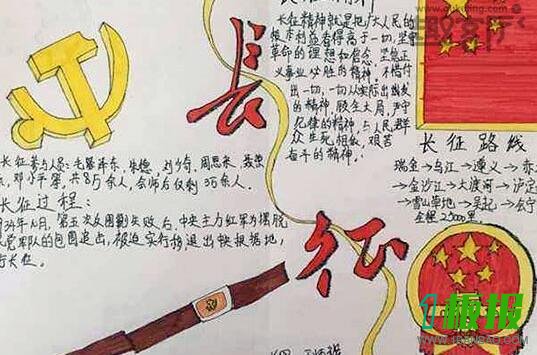 长征精神就是把广大人民的
根本利益看得高于一切，坚定
革命的理想和信念，坚信正
义事业必胜的精神，不惜付
出一切，一切从实际出发
的精神，顾全大局，严守
纪律的精神，与人民群众
生死相依，艰苦
奋斗的精神。
长
征
长征参与人员：毛泽东，朱德，刘少奇，周恩来，聂荣
邓小平等，共8万余人，会师后仅剩3万余人。
长征过程：
年10月，第五次反围剿失败后，中央主力红军为摆脱
党军队的包围追击，被迫实行战
长征。
长征路线
瑞金→乌江→遵义→赤
→金沙江→大渡河→泸定
→雪山草地→吴起→会宁
全程25000里
趣客厅
板报